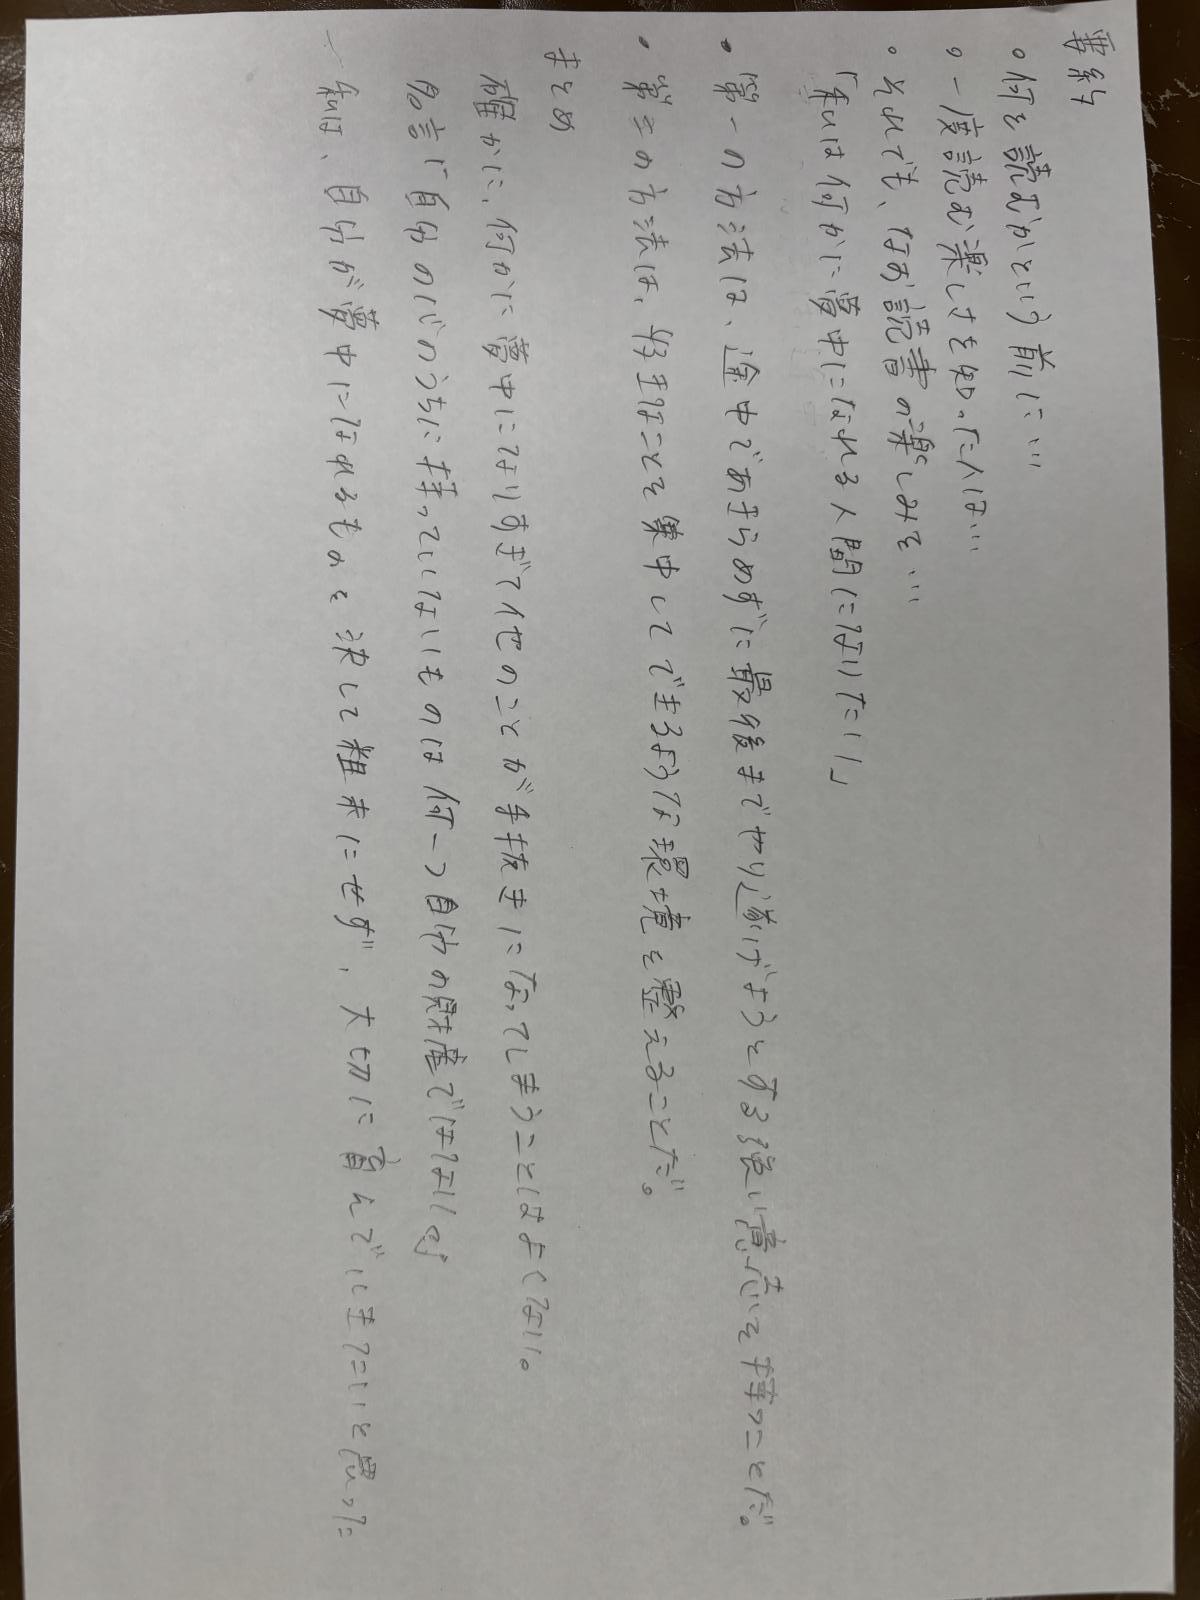 要約
。何を読むかという前に…
。一度読む楽しさを知った人は…
。それでも、なお読書の楽しみを…
「私は何かに夢中になれる人間になりたい」
・第一の方法は、途中であきらめずに最後までやり遂げようとする強い意志を持つことだ。
・第二の方法は、好きなことを集中してできるような環境を整えることだ。
まとめ
確かに、何かに夢中になりすぎて他のことが手抜きになってしまうことはよくない。
名言「自分の心のうちに持っていないものは何一つ自分の財産ではない。」
私は、自分が夢中になれるものを決して粗末にせず、大切に育んでいきたいと思った